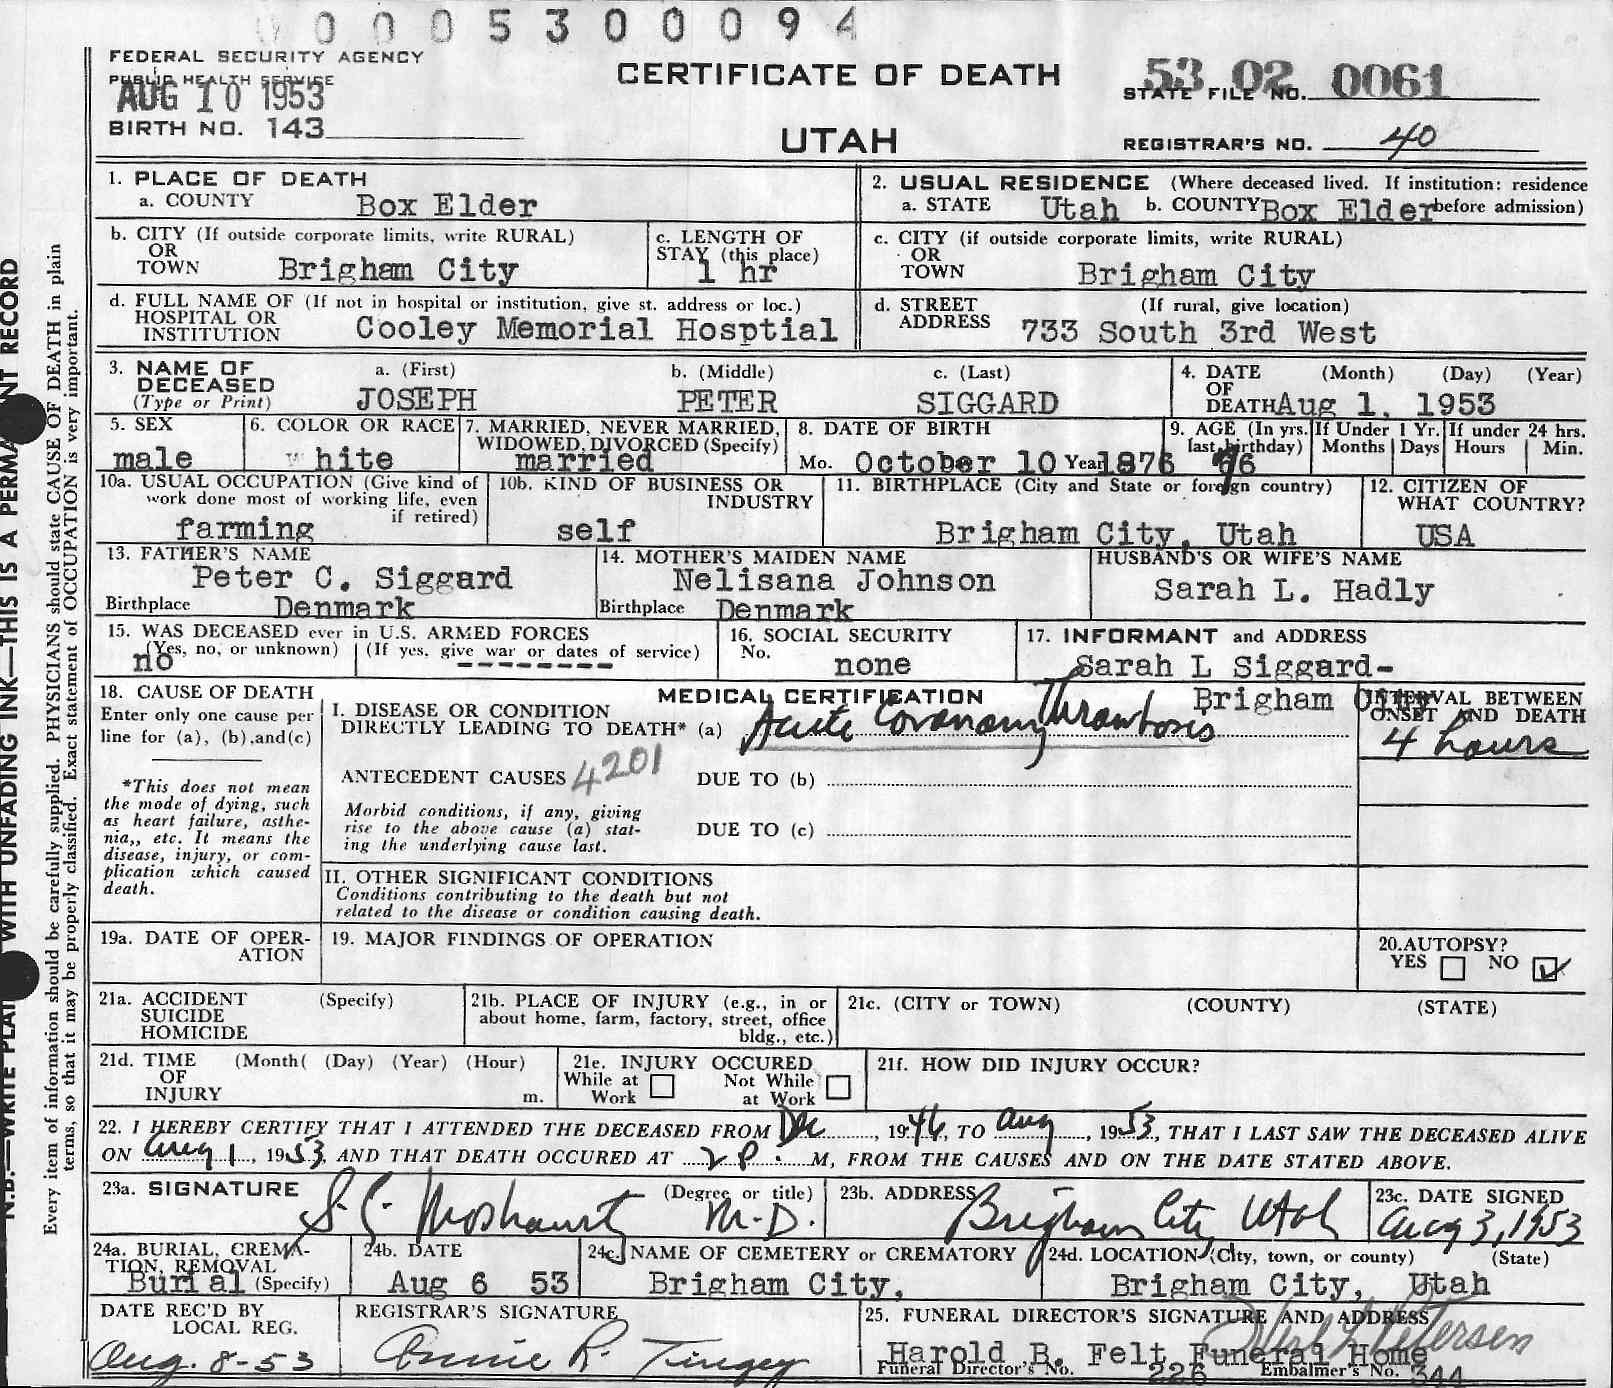 0 0 0 5 3 0 0 0 9 4
FEDERAL SECURITY AGENCY
PUBLIC HEALTH SERVICE
AUG 10 1953
BIRTH NO. 143
CERTIFICATE OF DEATH
UTAH
53 02 0061
STATE FILE NO.
REGISTRAR'S NO. 40
N.B.—WRITE PLAI WITH UNFADING INK—THIS IS A PERMA NT RECORD
Every item of information should be carefully supplied. PHYSICIANS should state CAUSE OF DEATH in plain
terms, so that it may be properly classified. Exact statement of OCCUPATION is very important.
1. PLACE OF DEATH
a. COUNTY Box Elder
2. USUAL RESIDENCE (Where deceased lived. If institution: residence
a. STATE Utah b. COUNTY Box Elder before admission)
b. CITY (If outside corporate limits, write RURAL)
OR
TOWN Brigham City
c. LENGTH OF
STAY (this place)
1 hr
c. CITY (if outside corporate limits, write RURAL)
OR
TOWN Brigham City
d. FULL NAME OF (If not in hospital or institution, give st. address or loc.)
HOSPITAL OR
INSTITUTION Cooley Memorial Hosptial
d. STREET (If rural, give location)
ADDRESS 733 South 3rd West
3. NAME OF a. (First) b. (Middle) c. (Last)
DECEASED
(Type or Print) JOSEPH PETER SIGGARD
4. DATE (Month) (Day) (Year)
OF
DEATH Aug 1, 1953
5. SEX
male
6. COLOR OR RACE
white
7. MARRIED, NEVER MARRIED,
WIDOWED, DIVORCED (Specify)
married
8. DATE OF BIRTH
Mo. October 10 Year 1876
9. AGE (In yrs. If Under 1 Yr. If under 24 hrs.
last birthday) Months Days Hours Min.
76
10a. USUAL OCCUPATION (Give kind of
work done most of working life, even
if retired)
farming
10b. KIND OF BUSINESS OR
INDUSTRY
self
11. BIRTHPLACE (City and State or foreign country)
Brigham City, Utah
12. CITIZEN OF
WHAT COUNTRY?
USA
13. FATHER'S NAME
Peter C. Siggard
Birthplace Denmark
14. MOTHER'S MAIDEN NAME
Nelisana Johnson
Birthplace Denmark
HUSBAND'S OR WIFE'S NAME
Sarah L. Hadly
15. WAS DECEASED ever in U.S. ARMED FORCES
(Yes, no, or unknown) (If yes, give war or dates of service)
no --------
16. SOCIAL SECURITY
No.
none
17. INFORMANT and ADDRESS
Sarah L Siggard-
Brigham City
18. CAUSE OF DEATH
Enter only one cause per
line for (a), (b),and(c)
*This does not mean
the mode of dying, such
as heart failure, asthe-
nia,, etc. It means the
disease, injury, or com-
plication which caused
death.
MEDICAL CERTIFICATION
I. DISEASE OR CONDITION
DIRECTLY LEADING TO DEATH* (a) Acute Coronary Thrombosis
INTERVAL BETWEEN
ONSET AND DEATH
4 hours
ANTECEDENT CAUSES 4201 DUE TO (b)
Morbid conditions, if any, giving
rise to the above cause (a) stat-
ing the underlying cause last.
DUE TO (c)
II. OTHER SIGNIFICANT CONDITIONS
Conditions contributing to the death but not
related to the disease or condition causing death.
19a. DATE OF OPER-
ATION
19. MAJOR FINDINGS OF OPERATION
20.AUTOPSY?
YES NO ✓
21a. ACCIDENT (Specify)
SUICIDE
HOMICIDE
21b. PLACE OF INJURY (e.g., in or
about home, farm, factory, street, office
bldg., etc.)
21c. (CITY or TOWN) (COUNTY) (STATE)
21d. TIME (Month( (Day) (Year) (Hour)
OF
INJURY m.
21e. INJURY OCCURED
While at Not While
Work at Work
21f. HOW DID INJURY OCCUR?
22. I HEREBY CERTIFY THAT I ATTENDED THE DECEASED FROM Dec, 1946, TO Aug, 1953, THAT I LAST SAW THE DECEASED ALIVE
ON Aug 1, 1953, AND THAT DEATH OCCURED AT 2 P. M, FROM THE CAUSES AND ON THE DATE STATED ABOVE.
23a. SIGNATURE (Degree or title)
M.D.
23b. ADDRESS
Brigham City Utah
23c. DATE SIGNED
Aug 3, 1953
24a. BURIAL, CREMA-
TION, REMOVAL
Burial (Specify)
24b. DATE
Aug 6 53
24c. NAME OF CEMETERY or CREMATORY
Brigham City,
24d. LOCATION (City, town, or county) (State)
Brigham City, Utah
DATE REC'D BY
LOCAL REG.
Aug. 8-53
REGISTRAR'S SIGNATURE
Annie R. Tingey
25. FUNERAL DIRECTOR'S SIGNATURE AND ADDRESS
Petersen
Harold B. Felt Funeral Home
Funeral Director's No. 226 Embalmer's No. 344